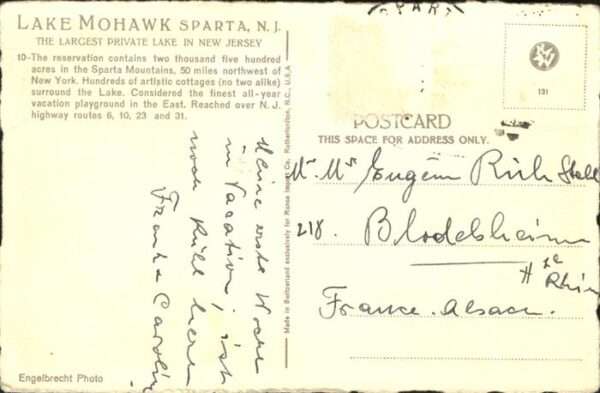 LAKE MOHAWK SPARTA, N. J.
THE LARGEST PRIVATE LAKE IN NEW JERSEY
10-The reservation contains two thousand five hundred
acres in the Sparta Mountains, 50 miles northwest of
New York. Hundreds of artistic cottages (no two alike)
surround the Lake. Considered the finest all-year
vacation playground in the East. Reached over N. J.
highway routes 6, 10, 23 and 31.
Meine erste Woche
in Vacation, ist
noch kühl hier
Frank & Carolin
Engelbrecht Photo
Made in Switzerland exclusively for Runse Import Co., Rutherfordton, N.C., U.S.A.
PAR
131
POSTCARD
THIS SPACE FOR ADDRESS ONLY.
Mr Mrs Eugen
218. Blodelsheim
Hte Rhin
France. Alsace.